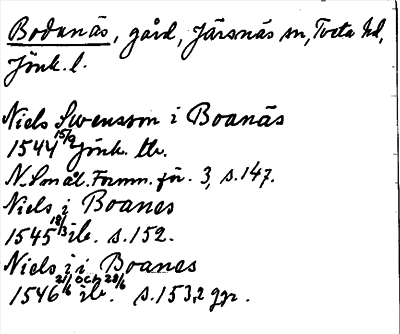 Bodanäs, gård, Järsnäs sn, Tveta hd,
Jönk. l.
Niels Swensson i Boanäs
1544 15/9 Jönk. tb.
N. Smål. Formn. för. 3, s. 147.
Niels i Boanes
1545 18/3 ib. s. 152.
Niels i i Boanes
1546 21/6 och 28/6 ib. s. 153, 2 ggr.